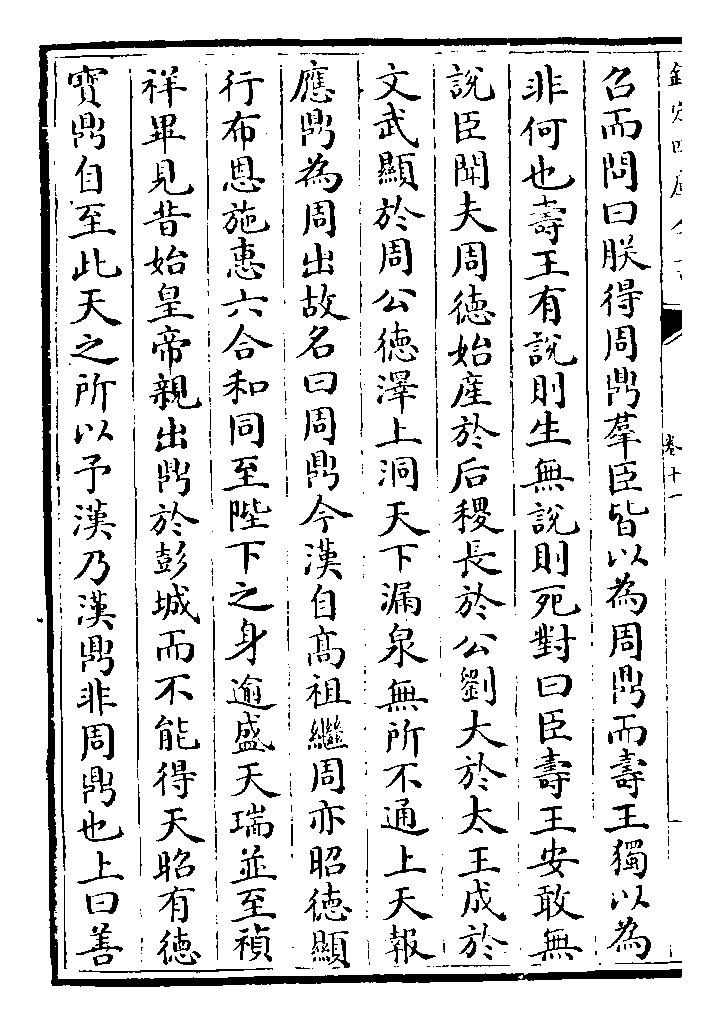 欽定四庫全書
卷十一
召而問曰朕得周鼎羣臣皆以為周鼎而壽王獨以為
非何也壽王有說則生無說則死對曰臣壽王安敢無
說臣聞夫周德始産於后稷長於公劉大於太王成於
文武顯於周公德澤上洞天下漏泉無所不通上天報
應鼎為周出故名曰周鼎今漢自髙祖繼周亦昭德顯
行布恩施惠六合和同至陛下之身逾盛天瑞並至禎
祥畢見昔始皇帝親出鼎於彭城而不能得天昭有德
寶鼎自至此天之所以予漢乃漢鼎非周鼎也上曰善